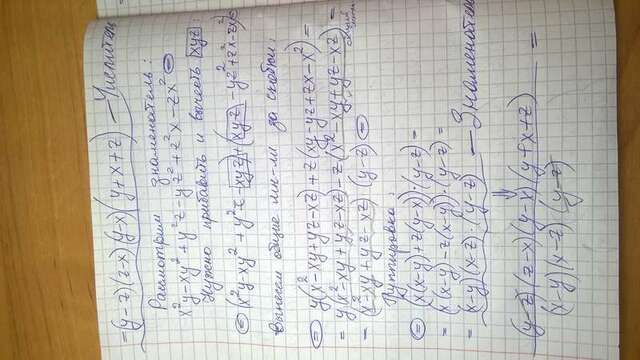 =(y-z)(z-x)(y-x)(y+x+z) — Числитель
Рассмотрим знаменатель:
x²y-xy²+y²z-yz²+z²x-zx² =
Нужно прибавить и вычесть xyz:
= (x²y-xy²+y²z-xyz)+(xyz-yz²+z²x-zx²)=
Вынесем общие мн-ли за скобки:
= y(x²-xy+yz-xz)+z(xy-yz+zx-x²)=
= y(x²-xy+yz-xz)-z(x²-xy+yz-xz)=
= (x²-xy+yz-xz)(y-z) =
Группировка:
= (x(x-y)+z(y-x))·(y-z)=
= (x(x-y)-z(x-y))·(y-z)=
= (x-y)(x-z)·(y-z) — Знаменатель
⇓
(y-z)(z-x)(y-x)(y+x+z) =
(x-y)(x-z)(y-z)